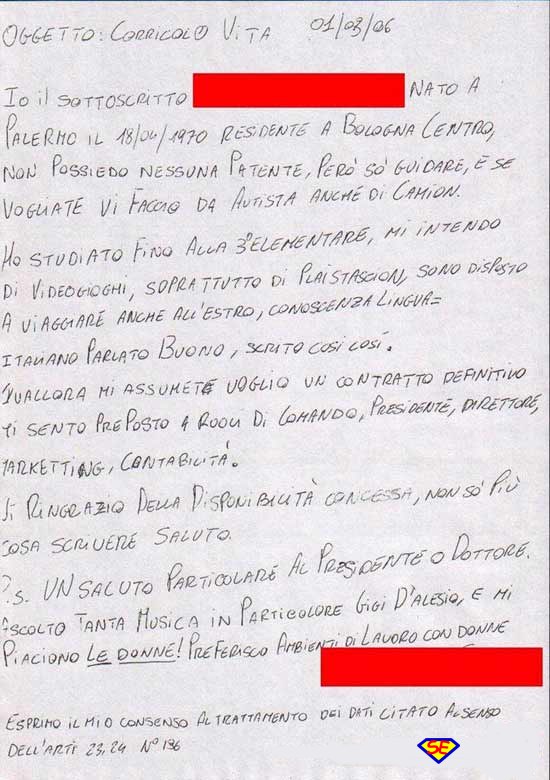 OGGETTO: CORRICOLO VITA 01/03/06
IO IL SOTTOSCRITTO NATO A
PALERMO IL 18/04/1970 RESIDENTE A BOLOGNA CENTRO,
NON POSSIEDO NESSUNA PATENTE, PERÒ SÒ GUIDARE, E SE
VOGLIATE VI FACCIO DA AUTISTA ANCHE DI CAMION.
HO STUDIATO FINO ALLA 3°ELEMENTARE, MI INTENDO
DI VIDEOGIOGHI, SOPRATTUTTO DI PLAISTASCION, SONO DISPOSTO
A VIAGGIARE ANCHE ALL'ESTRO, CONOSCENZA LINGUA=
ITALIANO PARLATO BUONO, SCRITO COSI COSÍ.
QUALLORA MI ASSUMETE VOGLIO UN CONTRATTO DEFINITIVO
MI SENTO PREPOSTO A RUOLI DI COMANDO, PRESIDENTE, DIRETTORE,
MARKETTING, CONTABILITÀ.
VI RINGRAZIO DELLA DISPONIBILITÀ CONCESSA, NON SÒ PIÙ
COSA SCRIVERE SALUTO.
P.S. UN SALUTO PARTICOLARE AL PRESIDENTE O DOTTORE.
ASCOLTO TANTA MUSICA IN PARTICOLORE GIGI D'ALESIO, E MI
PIACIONO LE DONNE! PREFERISCO AMBIENTI DI LAVORO CON DONNE
ESPRIMO IL MIO CONSENSO AL TRATTAMENTO DEI DATI CITATO AL SENSO
DELL'ARTI 23,24 N° 196
SE